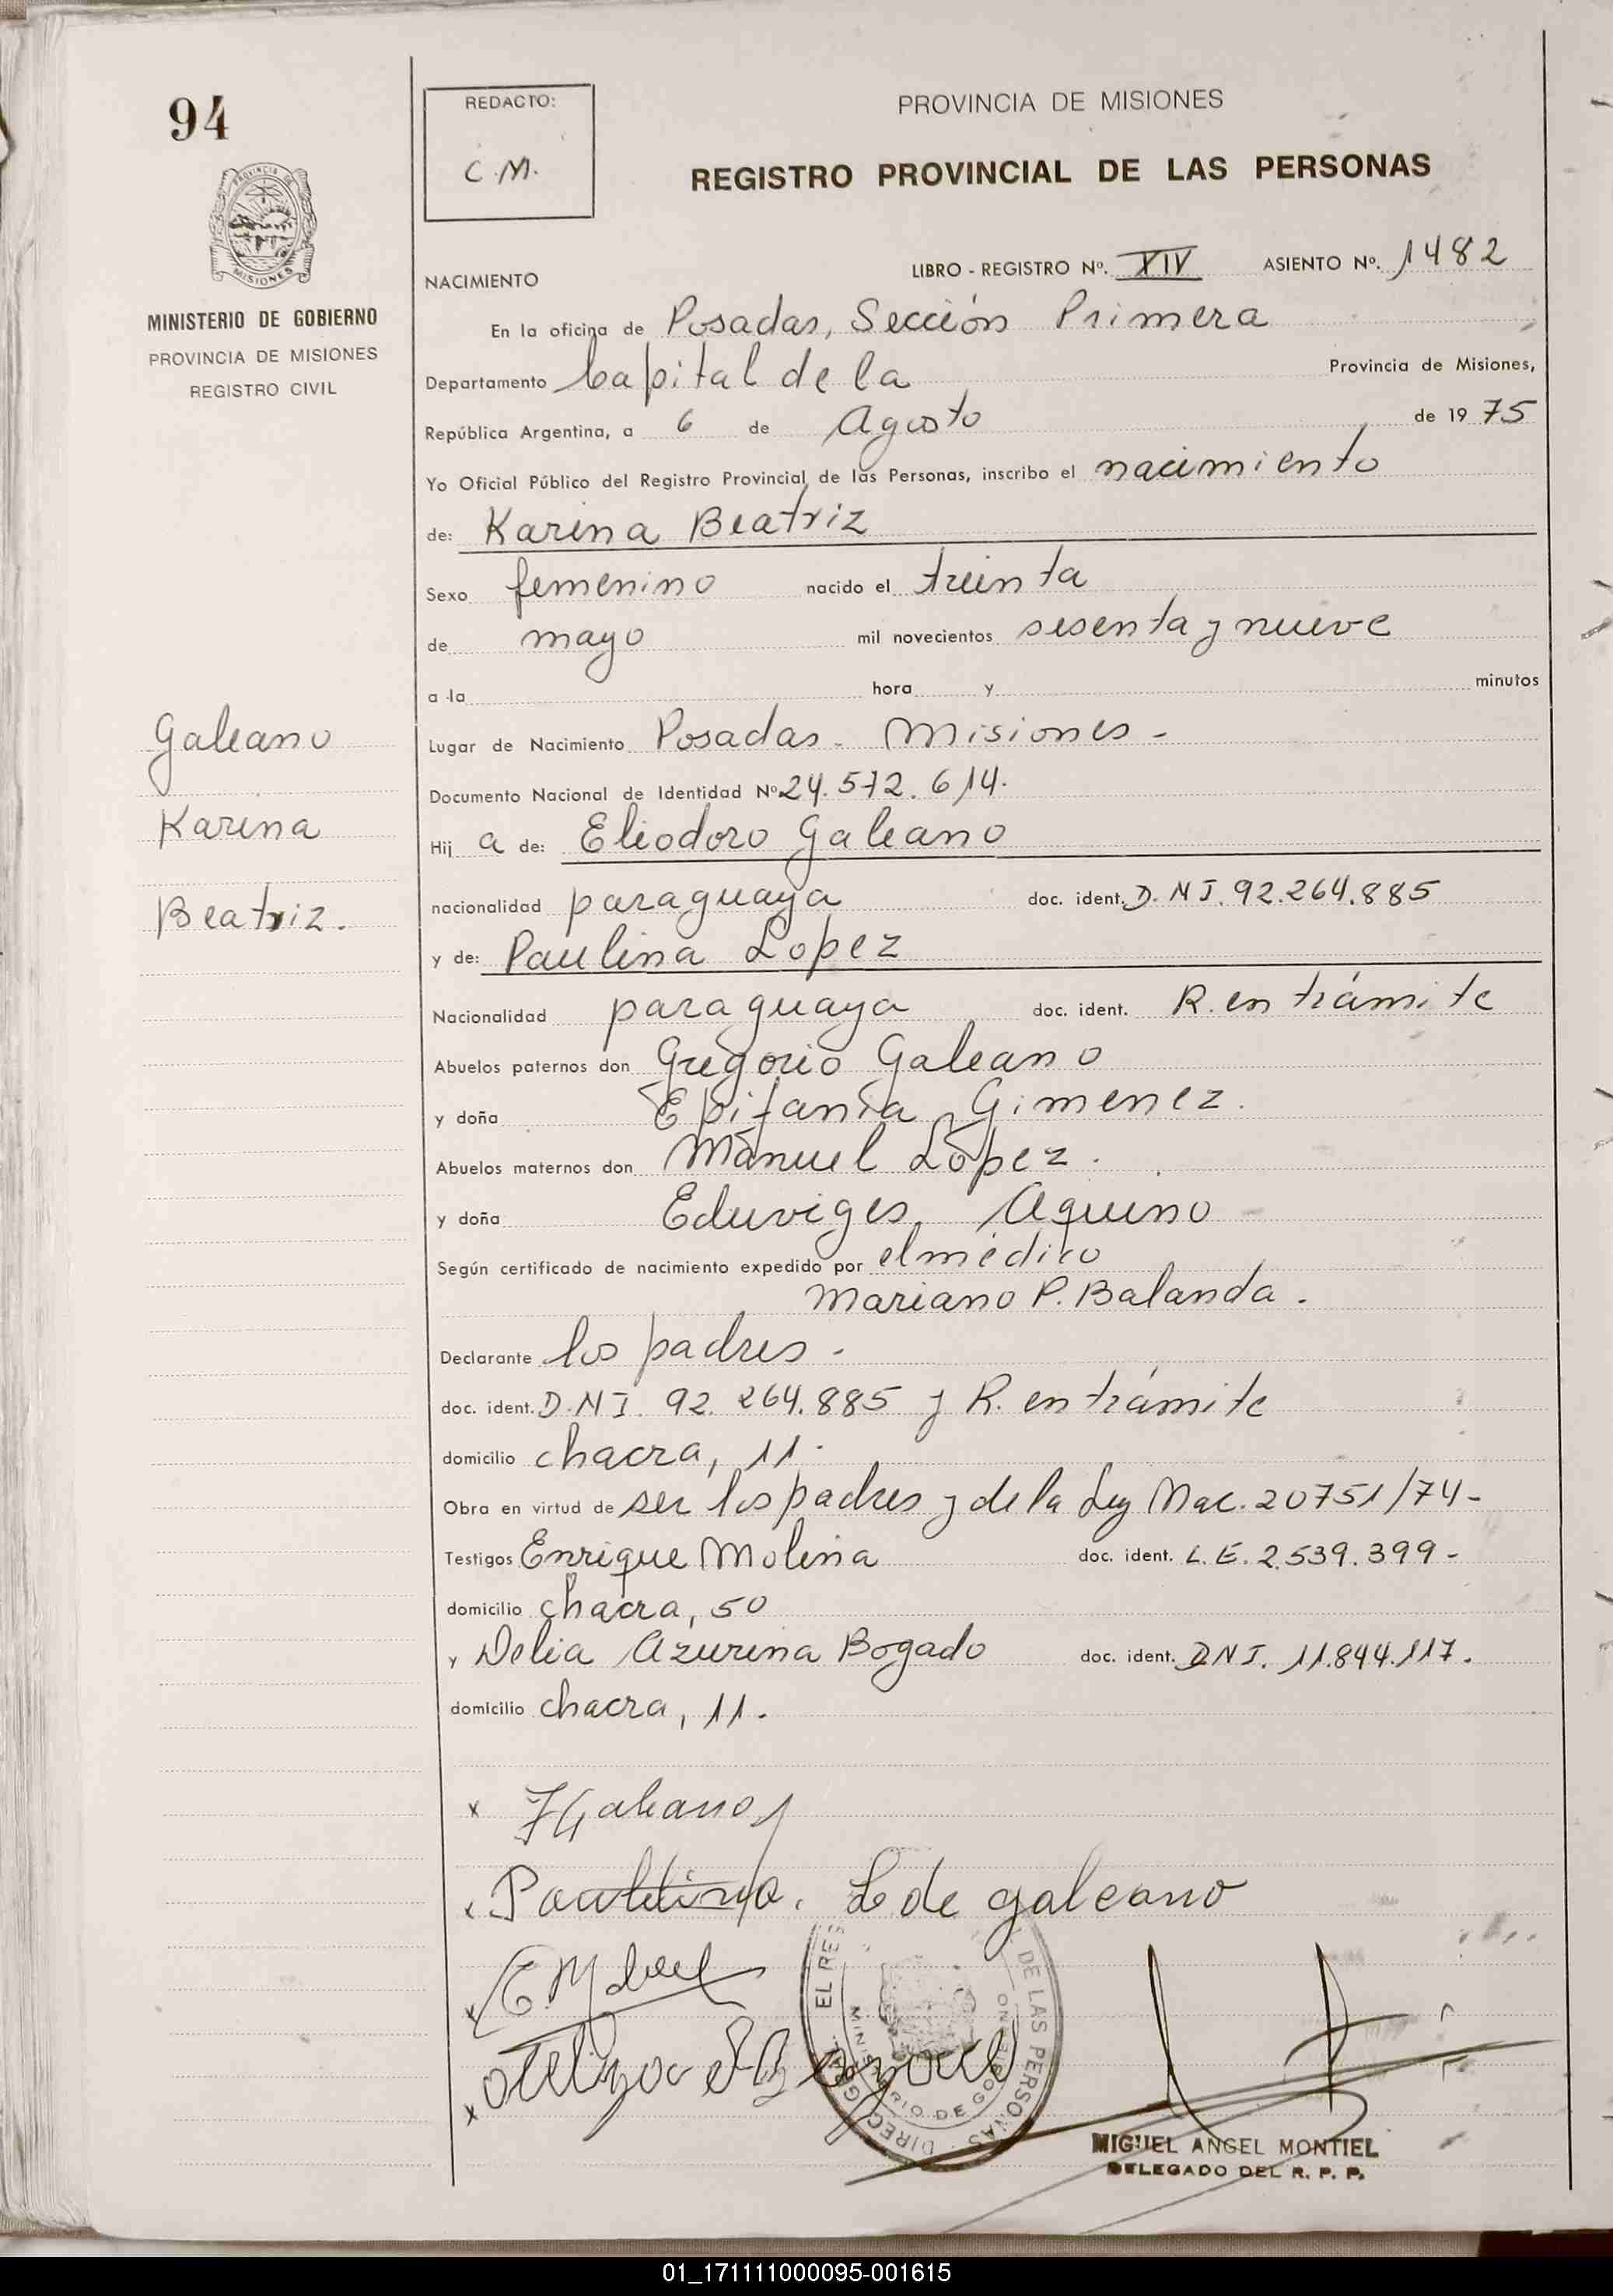 94
REDACTO:
C.M.
PROVINCIA DE MISIONES
REGISTRO PROVINCIAL DE LAS PERSONAS
LIBRO - REGISTRO Nº. XIV ASIENTO Nº. 1482
NACIMIENTO
MINISTERIO DE GOBIERNO
PROVINCIA DE MISIONES
REGISTRO CIVIL
En la oficina de Posadas, Sección Primera
Departamento Capital de la Provincia de Misiones,
República Argentina, a 6 de Agosto de 19 75
Yo Oficial Público del Registro Provincial de las Personas, inscribo el nacimiento
de: Karina Beatriz
Sexo femenino nacido el treinta
de mayo mil novecientos sesenta y nueve
a la hora y minutos
Galeano
Karina
Beatriz.
Lugar de Nacimiento Posadas - Misiones -
Documento Nacional de Identidad Nº 24.572.614.
Hij a de: Eliodoro Galeano
nacionalidad paraguaya doc. ident. D.N I. 92.264.885
y de: Paulina Lopez
Nacionalidad paraguaya doc. ident. R. en trámite
Abuelos paternos don Gregorio Galeano
y doña Epifania Gimenez.
Abuelos maternos don Manuel López.
y doña Eduviges Aquino
Según certificado de nacimiento expedido por el médico
Mariano P. Balanda.
Declarante los padres -
doc. ident. D.N I. 92.264.885 y R. en trámite
domicilio chacra, 11.
Obra en virtud de ser los padres y de la Ley Nac. 20751/74-
Testigos Enrique Molina doc. ident. L.E. 2.539.399-
domicilio chacra, 50
y Delia Azurina Bogado doc. ident. D N I. 11.844.117.
domicilio chacra, 11.
x Galeano
x L de galeano
x
x
DE LAS PERSONAS
MINISTERIO DE GOBIERNO
MIGUEL ANGEL MONTIEL
DELEGADO DEL R. P. P.
01_171111000095-001615